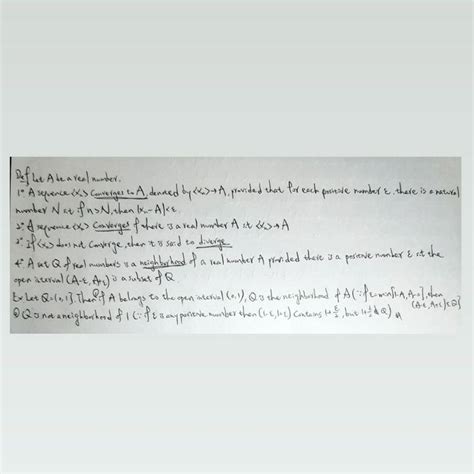 Def Let A be a real number.
1° A sequence <xₙ> Converges to A, denoted by <xₙ>→A, provided that for each positive number ε, there is a natural
number N st if n>N, then |xₙ-A|<ε.
2° A sequence <xₙ> Converges if there is a real number A st <xₙ>→A
3° If <xₙ> does not Converge, then it is said to diverge
4° A set Q of real numbers is a neighborhood of a real number A provided there is a positive number ε st the
open interval (A-ε, A+ε) is a subset of Q
Ex Let Q=(0,1] Then if A belongs to the open interval (0,1), Q is the neighborhood of A (∵ if ε=min{1-A, A-0}, then
(A-ε, A+ε)⊆Q)
Q is not a neighborhood of 1 (∵ if ε is any positive number then (1-ε, 1+ε) Contains 1+ε/2, but 1+ε/2∉Q)